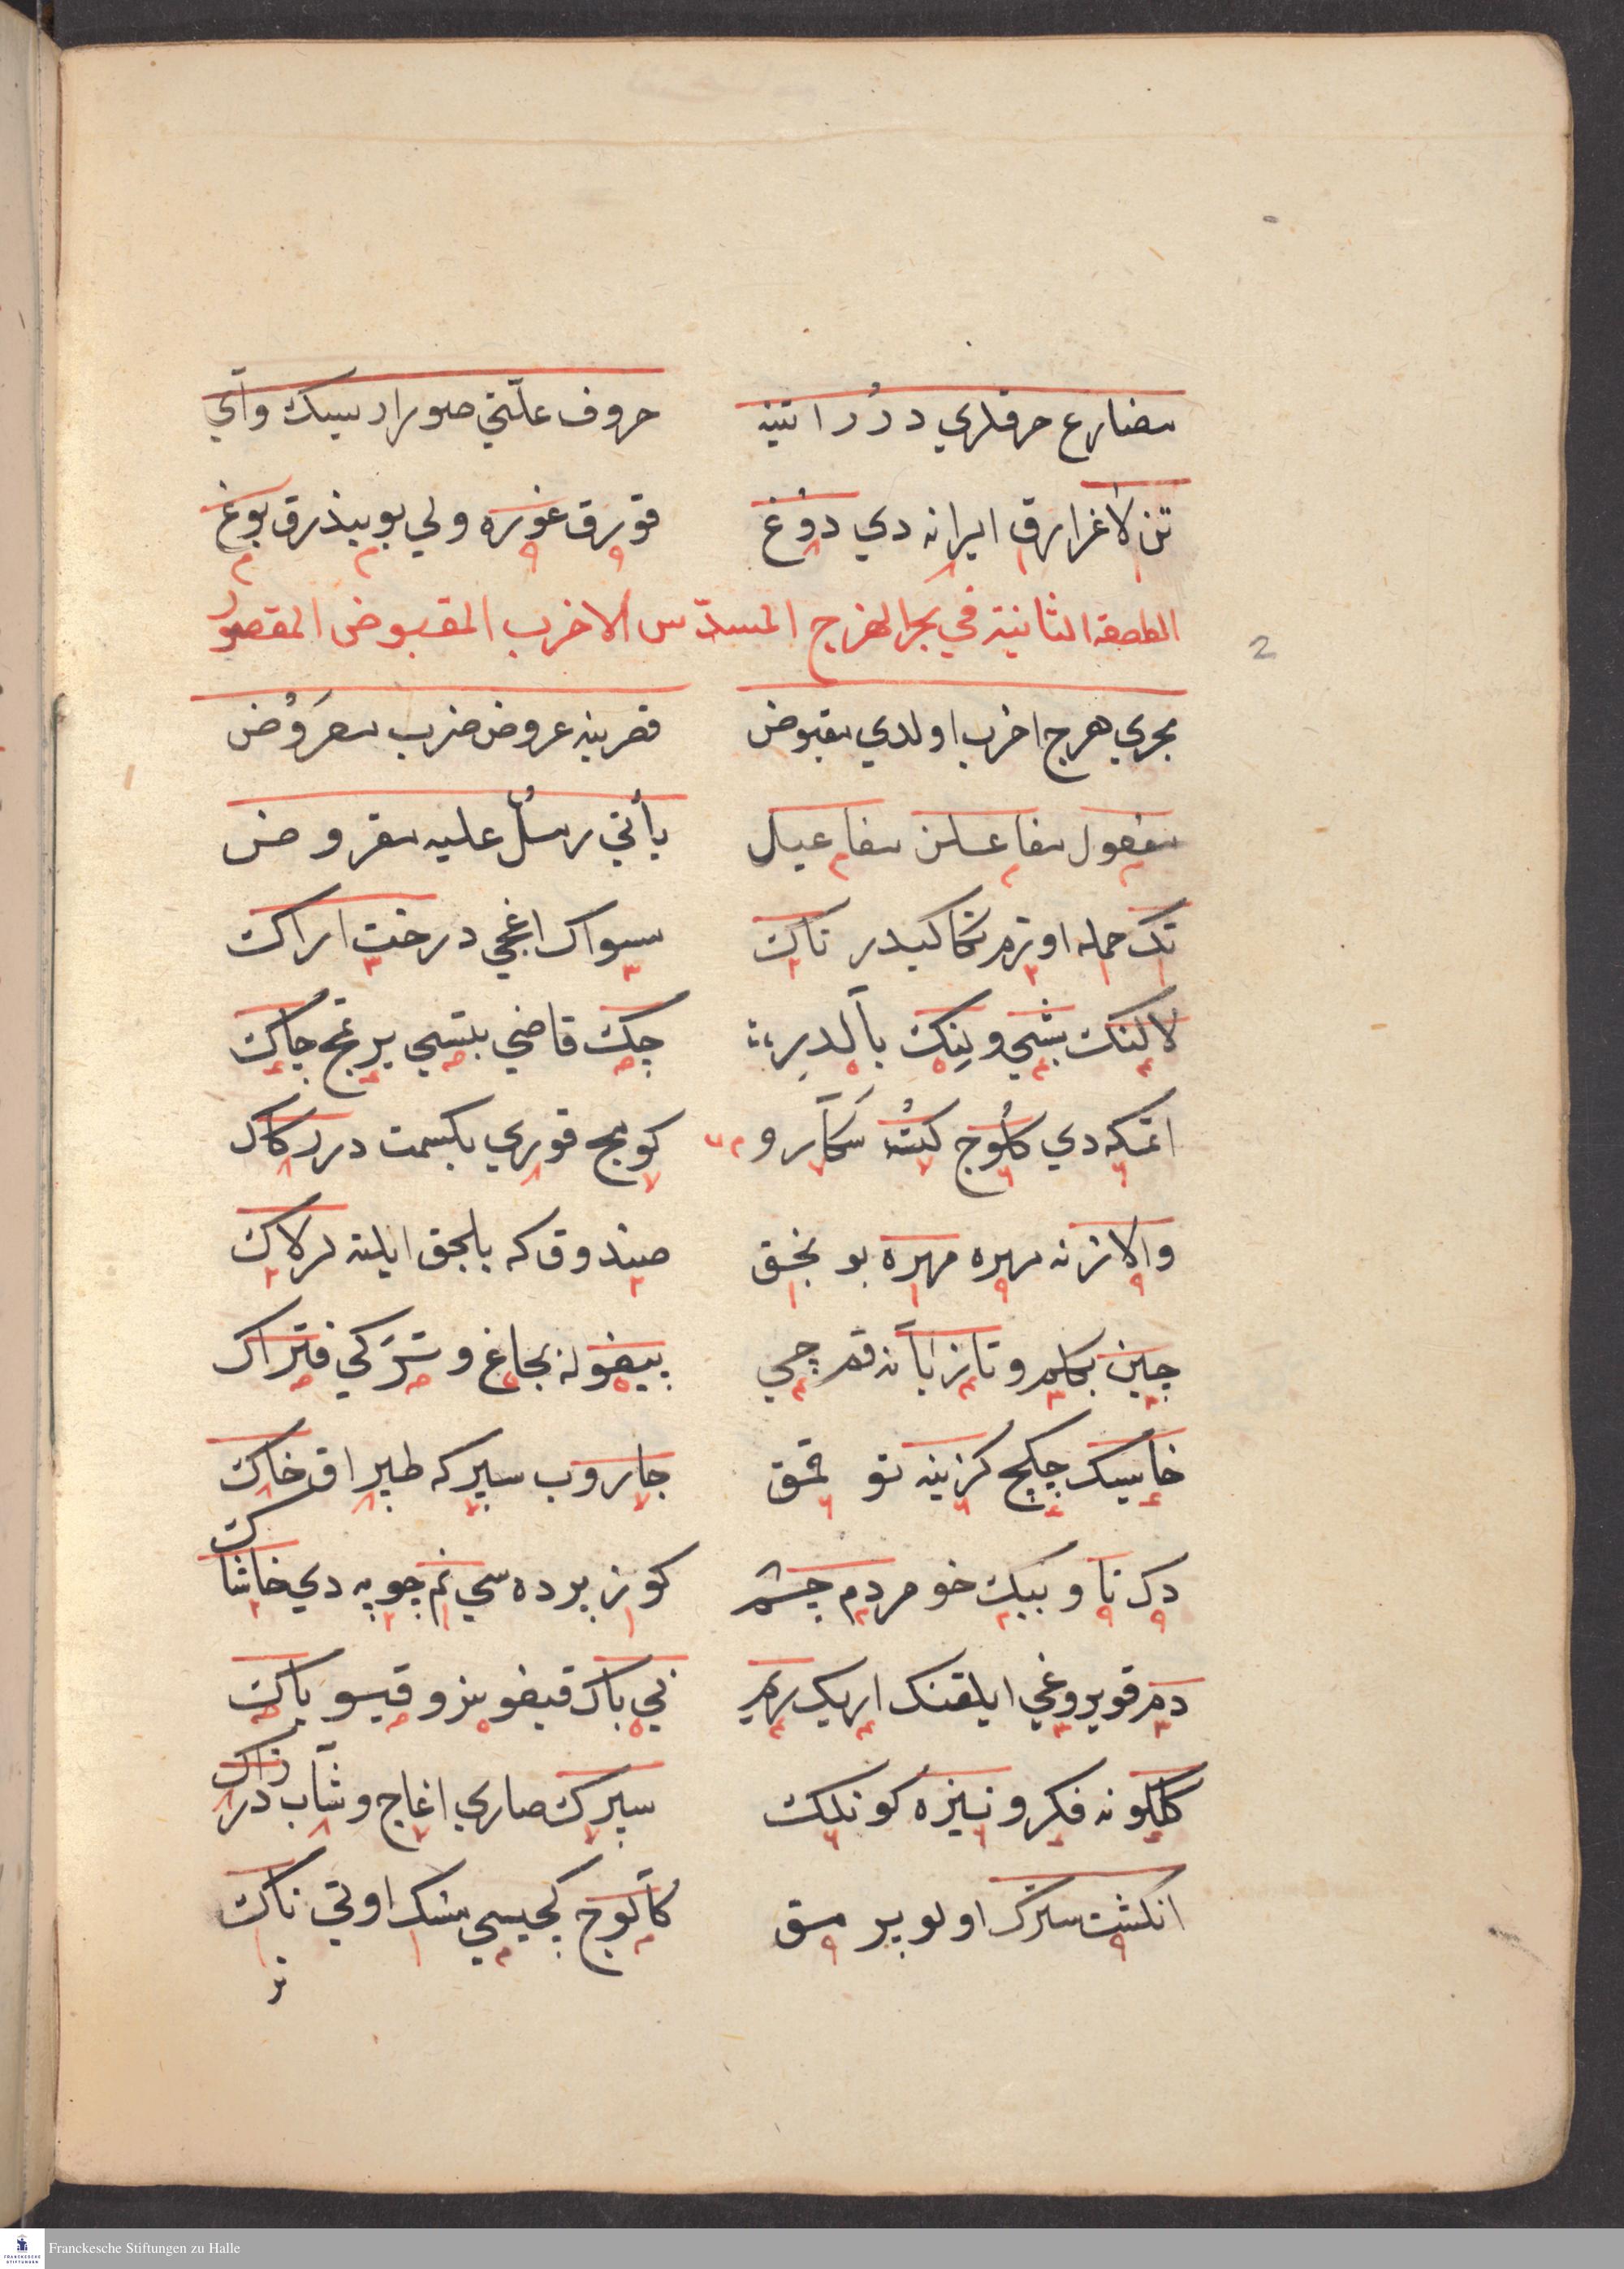 مضارع حرفلري در در اتينه حروف علّتي صورارسك وآي
تن لاغر ارق ايرانه دي دوغ قورق غوره ولي بوينذرق يوغ
القطعة الثانية في بحر الهزج المسدّس الاخرب المقبوض المقصور
2
بحري هزج اخرب اولدي مقبوض قصرينه عروض ضرب معروض
مفعول مفاعلن مفاعيل يأتي رسلٌ عليه مقروض
تك حمله اوزم تكاكيدر تاك مسواك اغجي درخت اراك
لالنك بشي وينك يالدر چك قاضي بتسي يرتمج چاك
اتمكه دي كلوج كبته سكار و كومج قوري بكسمت در كاك
والازنه مهره مهره بو نجق صندوق كه بلجق ايلنه لاك
چين بكلم و تازيانه قمرچي بيغوله بجاغ و تركي فتراك
خايسك چكج كزينه تو قمق جاروب سپركه طپراق خاك
دك نا و ببك خو مردم چشم كوز پرده سي نم چوپه دي خاشاك
دم قويروغي ايلقنك اريك ريم ني باك قيغوسز و قيسو باك
كلكونه فكر و نيزه كونلك سپرك صاري اغاج و شاب در زاك
انكشت سترك اولو پرمق كالوج كچيسي مشك اوتي ناك
تر
Franckesche Stiftungen zu Halle